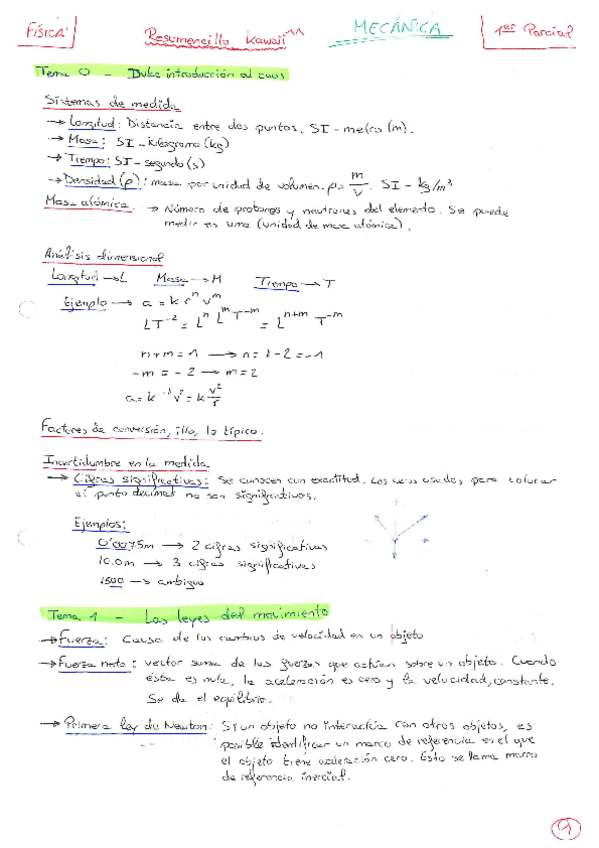 FÍSICA
Resumencillo Kawaii^^
MECÁNICA
1er Parcial
Tema 0 - Dulce introducción al caos
Sistemas de medida
→ Longitud: Distancia entre dos puntos. SI - metros (m).
→ Masa: SI - kilogramo (kg)
→ Tiempo: SI - segundo (s)
→ Densidad (ρ): masa por unidad de volumen. ρ = m/V. SI - kg/m³
Masa atómica. → Número de protones y neutrones del elemento. Se puede
medir en uma (unidad de masa atómica).
Análisis dimensional
Longitud → L Masa → M Tiempo → T
Ejemplo → a = k rⁿ vᵐ
LT⁻² = Lⁿ Lᵐ T⁻ᵐ = Lⁿ⁺ᵐ T⁻ᵐ
n+m = 1 → n = 1-2 = -1
-m = -2 → m = 2
a = k r⁻¹ v² = k v²/r
Factores de conversión, illo, lo típico.
Incertidumbre en la medida
→ Cifras significativas: Se conocen con exactitud. Los ceros usados para colocar
el punto decimal no son significativos.
Ejemplos:
0'0075m → 2 cifras significativas
10.0m → 3 cifras significativas
1500 → ambiguo
Tema 1 - Las leyes del movimiento
→ Fuerza: Causa de los cambios de velocidad en un objeto
→ Fuerza neta: vector suma de las fuerzas que actúan sobre un objeto. Cuando
ésta es nula, la aceleración es cero y la velocidad, constante.
Se da el equilibrio.
→ Primera ley de Newton: Si un objeto no interactúa con otros objetos, es
posible identificar un marco de referencia en el que
el objeto tiene aceleración cero. Esto se llama marco
de referencia inercial.